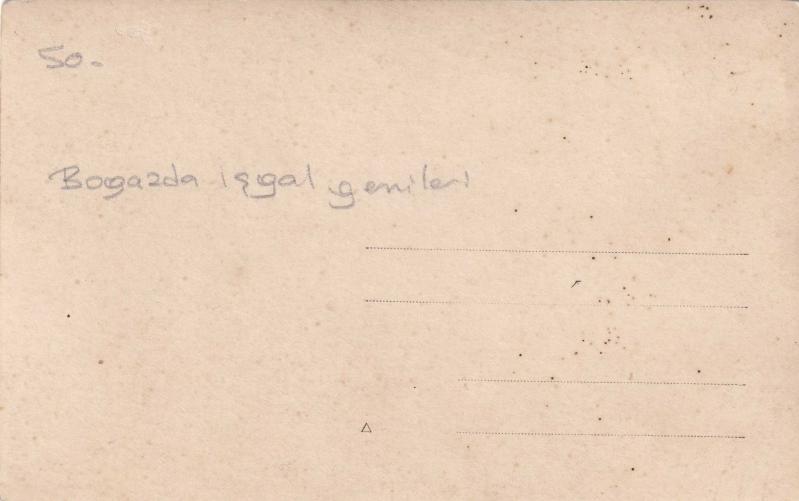 50.-
Bogazda işgal gemileri